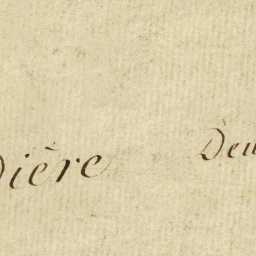 dière Deu